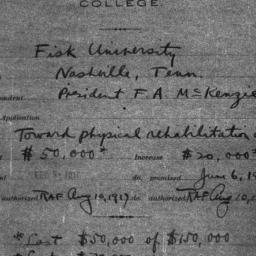 COLLEGE.
Fisk University
Nashville, Tenn.
President F. A. McKenzie
Application
Toward physical rehabilitation
$50,000 Increase $20,000
do. promised June 6, 19
authorized RAF Aug 10, 1917 do. authorized RAF Aug 10,
*Last $50,000 of $150,000